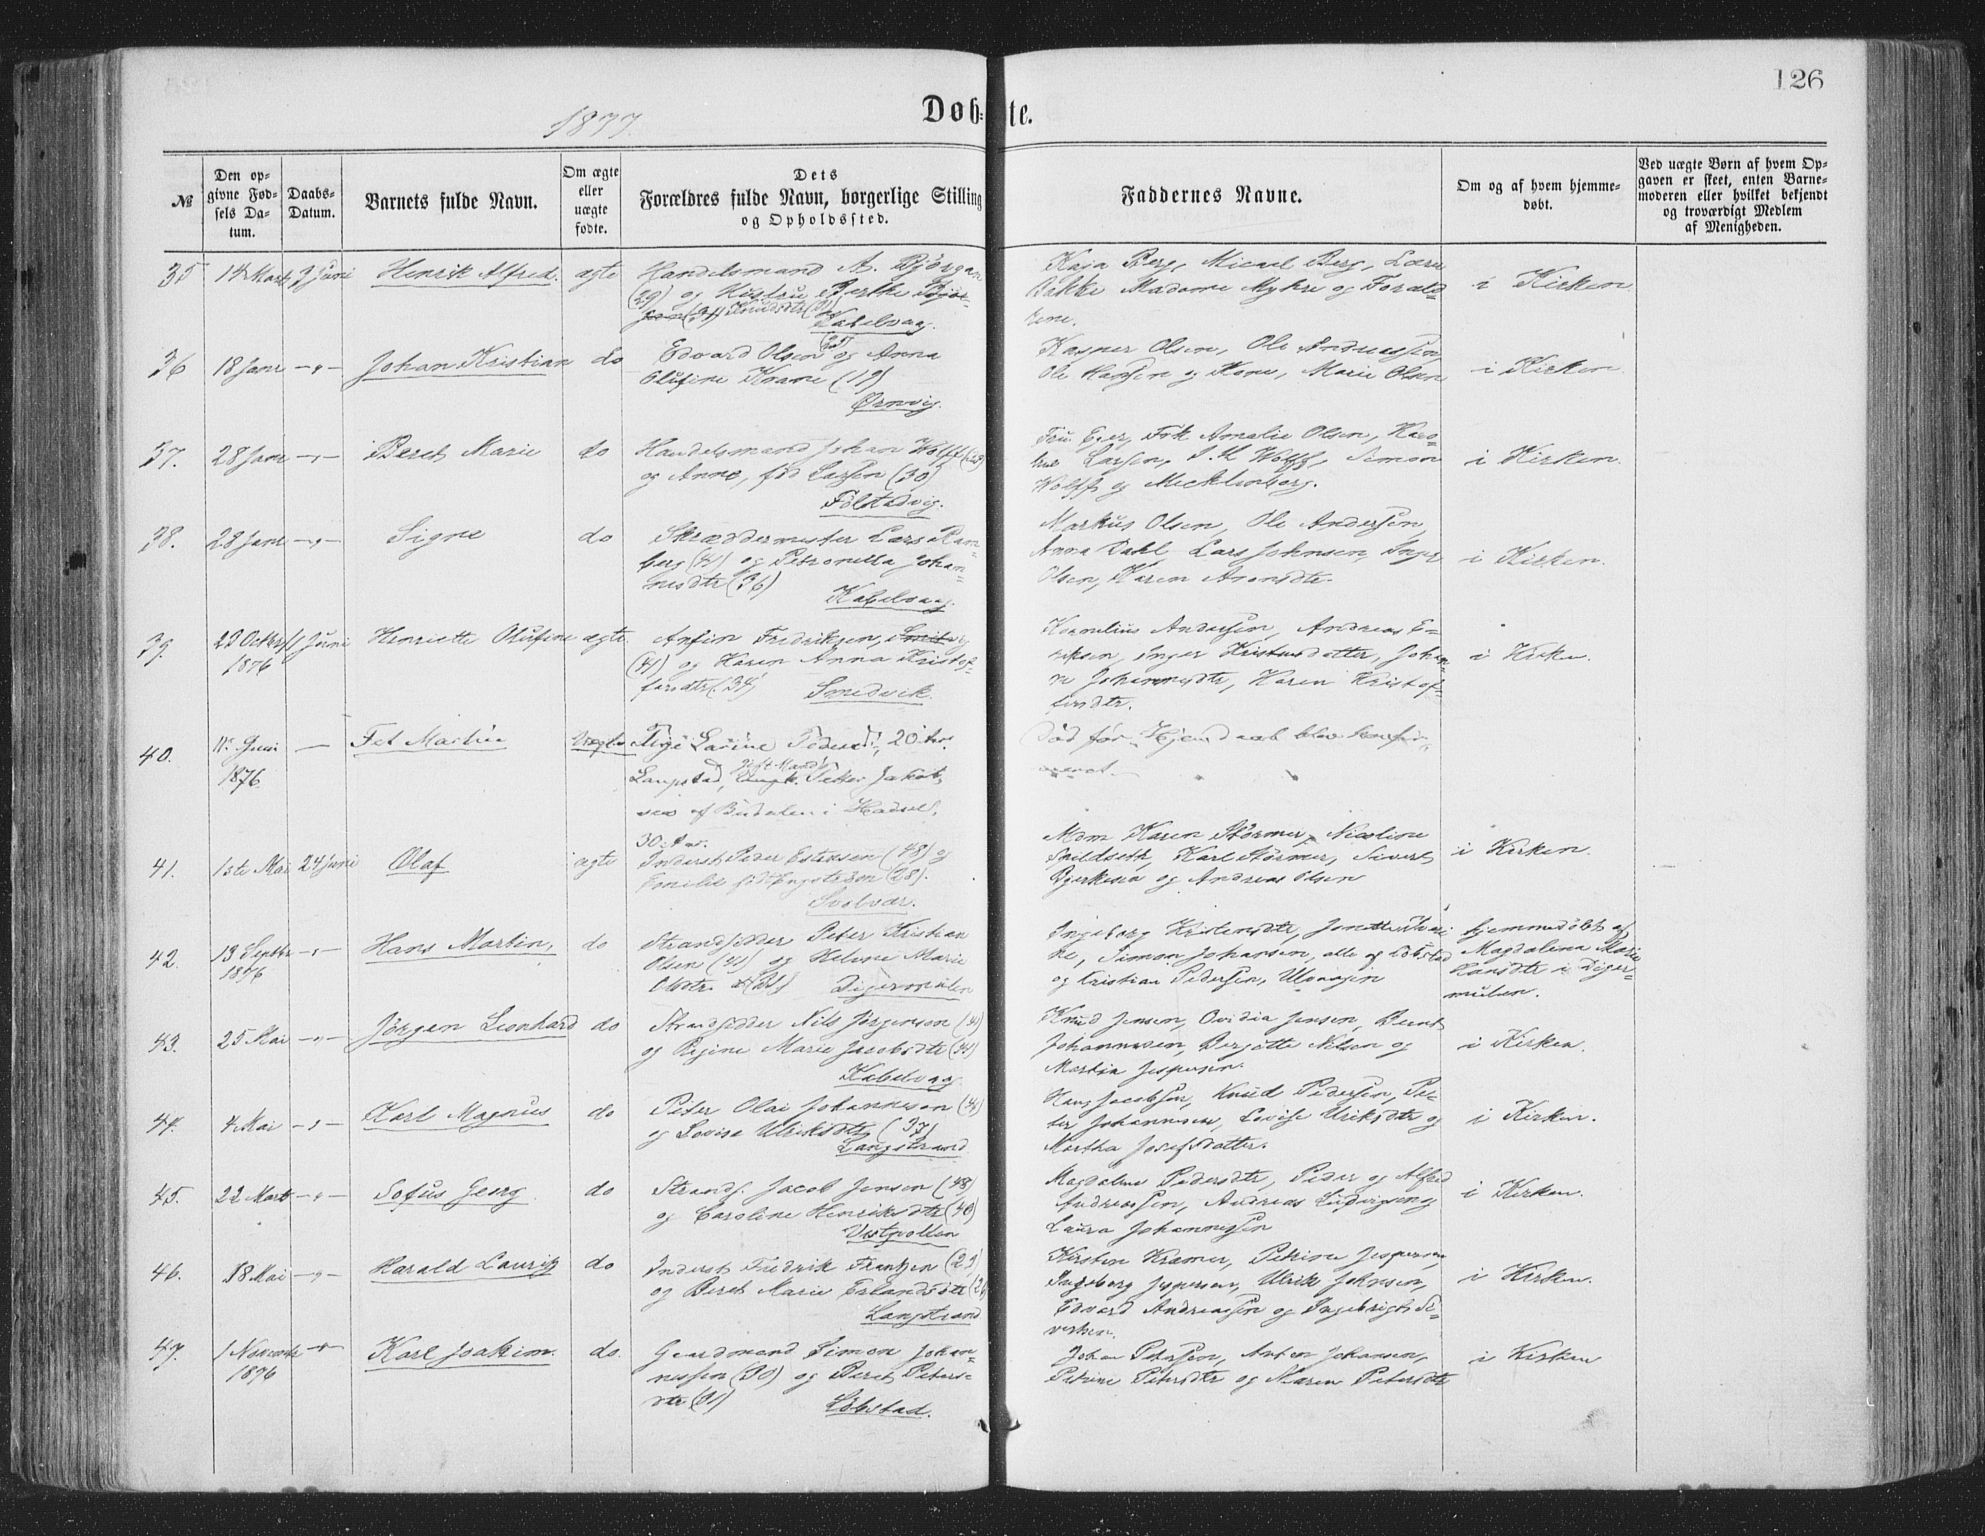 126
1877.
Døb-te.
№
Den opgivne Fødsels Datum.
Daabs-Datum.
Barnets fulde Navn.
Om ægte eller uægte fødte.
Dets Forældres fulde Navn, borgerlige Stilling og Opholdssted.
Faddernes Navne.
Om og af hvem hjemmedøbt.
Ved uægte Børn af hvem Opgaven er skeet, enten Barnemoderen eller hvilket bekjendt og troværdigt Medlem af Menigheden.
35 14 Marts 3 Juni Henrik Alfred. ægte Handelsmand A. Bjørgan
(29) og Hustru Berthe
Knudsdtr
Kabelvaag.
Kaja Berg, Micael Berg, Lærer
Bakke Madame Myhre og Foræld-
rene.
i Kirken
36 18 Janr -"- Johan Kristian do Edvard Olsen og Anna
Olufine Krane (19)
Ørnvig.
Kasper Olsen, Ole Andreassen
Ole Hansen og Kone, Marie Olsen
i Kirken
37. 28 Janr -"- Beret Marie do Handelsmand Johan Wolff
og Anne, fød Larsen (30)
Følstadvig.
Fru Eger, Frk Amalie Olsen, Karo-
line Larsen, Wolff, Simon
Wolff og Mecklenborg.
i Kirken.
38. 28 Janr -"- Signe do Skræddermester Lars Ram-
berg (41) og Petronella Johan-
nesdtr (36)
Kabelvaag.
Markus Olsen, Ole Andersen,
Anna Dahl, Lars Johnsen, Inger
Olsen, Karen Aronsdtr.
i Kirken.
39. 22 Octbr Juni Henriette Olufine ægte Arfin Fredriksen,
1876
(41) og Karen Anna Kristof-
fersdtr (34) Smedvik.
Kornelius Andersen, Andreas E-
riksen, Inger Kristensdatter, Johan-
ne Johannesdtr, Karen Kristof-
fersdtr.
i Kirken.
40. Juni 1876. — Uægte Larine Pedersd., 20 Aar.
Langstad, Petter Jakob-
sen af i Hadsel,
30 Aar.
Død før Hjemdaab blev konfir-
meret.
41. 1ste Mai 24 Juni Olaf ægte Inderst Peder Estensen (48) og
Emilie født Engelsen (28).
Svolvær.
Mdm Karen Størmer, Nicoline
Karl Størmer, Sivert
Bjerkesen og Andreas Olsen
i Kirken.
42. 13 Septbr -"- Hans Martin, do Strandsidder Peter Kristian
1876
Olsen (41) og Helene Marie
Olsdtr. Digermulen
Ingeborg Kristensdtr,
Simon Johansen, alle af
og Kristian Pedersen, Ulvaagen
hjemmedøbt af
Magdalena Marie
Hansdtr i Diger-
mulen.
43. 25 Mai -"- Jørgen Leonhard do Strandsidder Nils Jørgensen
og Regine Marie Jacobsdtr (34)
Kabelvaag
Knud Jensen, Ovidia Jensen, Bernt
Johannessen, Berjitte Nilsen og
Martin Jespersen.
i Kirken.
44. 4 Mai -"- Karl Magnus do Peter Olai Johannesen
og Lovise Ulriksdtr (37)
Langstrand
Hans Jacobsen, Knud Pedersen, Pe-
ter Johannesen, Lovise Ulriksdtr og
Martha Josefsdatter.
i Kirken.
45. 22 Marts -"- Sofus Georg do Strands. Jacob Jensen (48)
og Caroline Henriksdtr (40)
Vestpollen
Magdalene Pedersdtr, Peder og Alfred
Andreassen, Andreas Ludvigsen og
Laura Johannessen
i Kirken.
46. 18 Mai -"- Harald Lauritz do Inderst Fredrik Frantzen
og Beret Marie Erlandsdtr
Langstrand
Kirsten Kramer, Petrine Jespersen,
Ingeborg Jespersen, Ulrik Johnsen,
Edvard Andreassen og Ingebrigt Si-
vertsen.
i Kirken.
47. 1 Novembr 1876 -"- Karl Joakim do. Gaardmand Simon Johan-
nessen (30) og Beret Peters-
dtr (31)
Johan Petersen, Anton Johansen,
Petrine Petersdtr og Maren Petersdtr
i Kirken